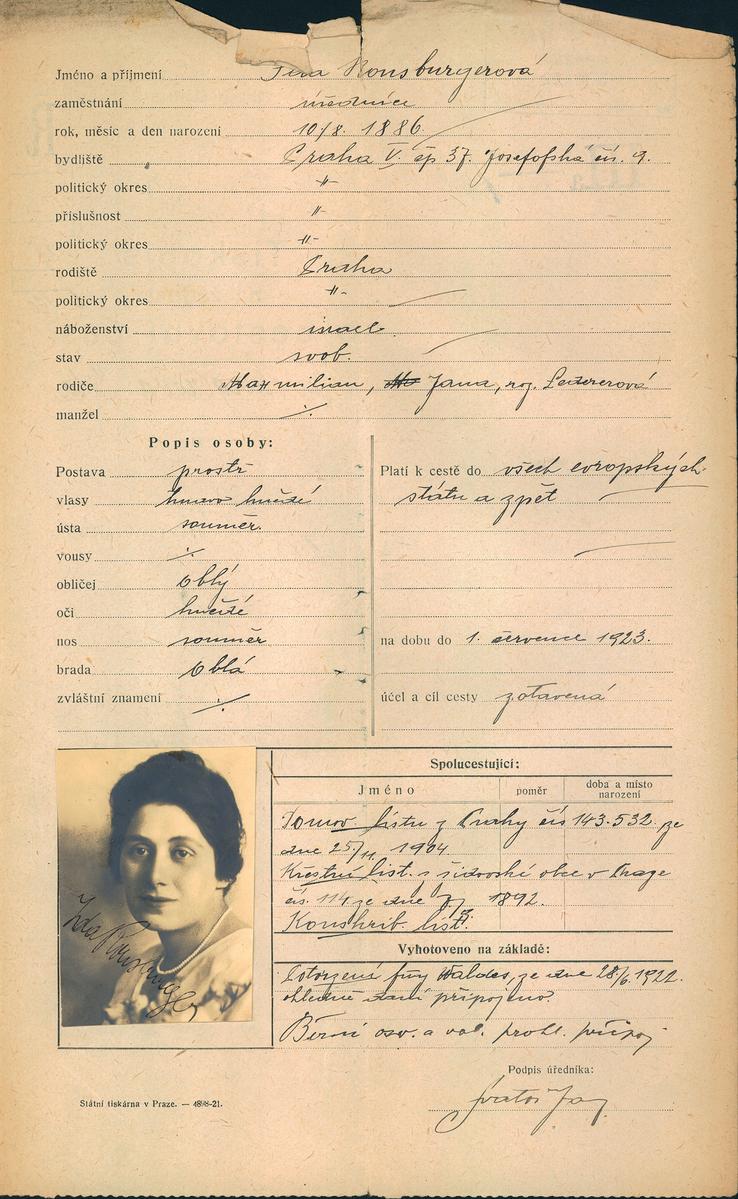 Jméno a příjmení Ida Ronsburgerová
zaměstnání úřednice
rok, měsíc a den narození 10/8. 1886.
bydliště Praha V. čp 37. Josefofská čís. 9.
politický okres -"-
příslušnost -"-
politický okres -"-
rodiště Praha
politický okres -"-
náboženství israel.
stav svob.
rodiče Maxmilian, Jana, roz. Ledererová
manžel ./.
Popis osoby:
Postava prostř
vlasy tmavo hnědé
ústa souměr.
vousy ./.
obličej oblý
oči hnědé
nos souměr
brada oblá
zvláštní znamení ./.
Platí k cestě do všech evropských
státu a zpět
na dobu do 1. července 1923.
účel a cíl cesty zotavená
Ida Ronsburger
Spolucestující:
Jméno poměr doba a místo narození
Domov. listu z Prahy čís 143.532 ze
dne 25/11. 1904
Křestní list. s židovské obce v Praze
čís. 114 ze dne 1892.
Konskrib. list.
Vyhotoveno na základě:
Potvrzení firmy Waldes, ze dne 28/6. 1922.
ohledně daní připojeno.
Berní osv. a val. prohl. připoj
Podpis úředníka:
Státní tiskárna v Praze. — 4898-21.